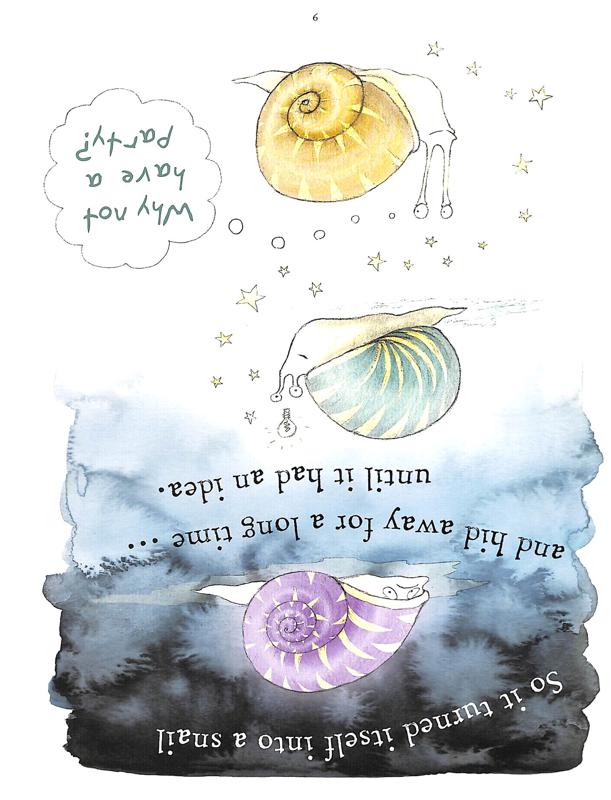 So it turned itself into a snail
and hid away for a long time ...
until it had an idea.
Why not
have a
party?
6